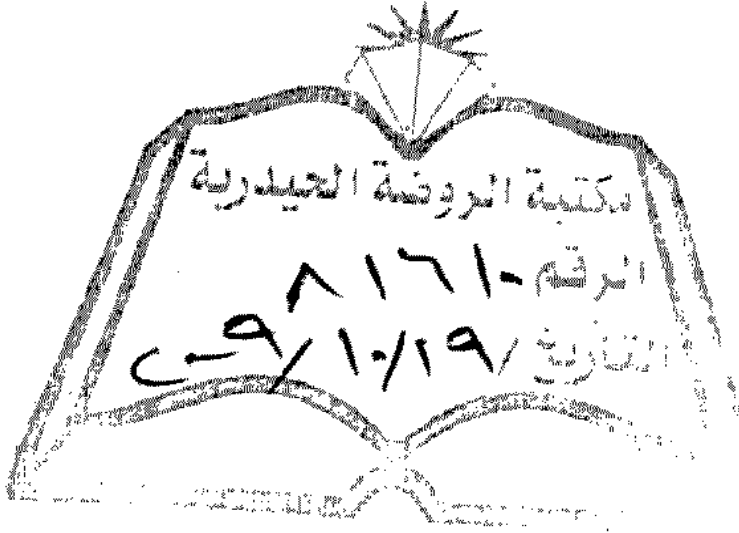 مكتبة الروضة الحيدرية
الرقم ٨١٦١٠
التاريخ ٢٠٠٩/١٠/١٩